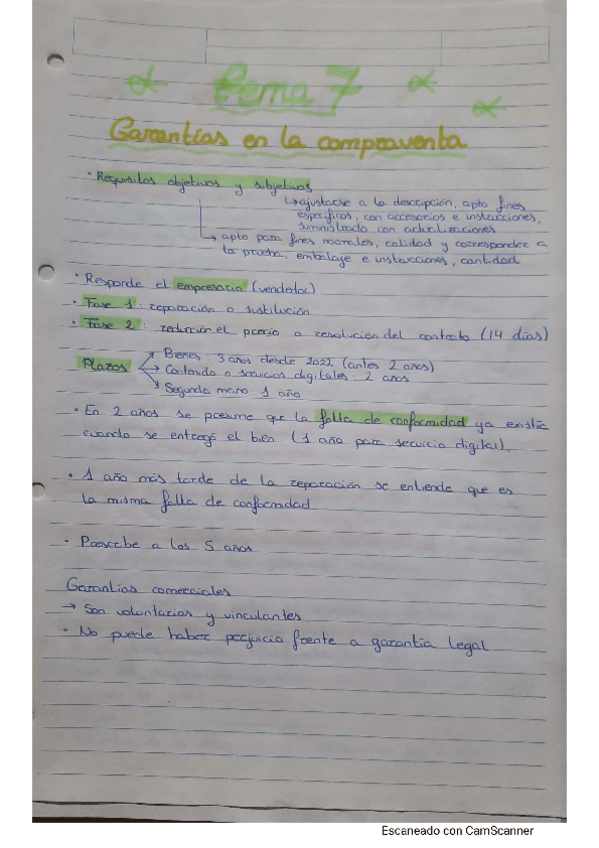 Tema 7
Garantías en la compraventa
· Requisitos objetivos y subjetivos
↳ ajustarse a la descripción, apto fines
específicos, con accesorios e instrucciones,
suministrado con actualizaciones
↳ apto para fines normales, calidad y corresponder a
la prueba, embalaje e instrucciones, cantidad
· Responde el empresario (vendedor)
· Fase 1: reparación o sustitución
· Fase 2: reducción el precio o resolución del contrato (14 días)
Plazos → Bienes: 3 años desde 2022 (antes 2 años)
→ Contenido o servicios digitales: 2 años
→ Segunda mano 1 año
· En 2 años se presume que la falta de conformidad ya existía
cuando se entregó el bien (1 año para servicio digital).
· 1 año más tarde de la reparación se entiende que es
la misma falta de conformidad
· Prescribe a los 5 años
Garantías comerciales
→ Son voluntarias y vinculantes
· No puede haber perjuicio frente a garantía legal
Escaneado con CamScanner